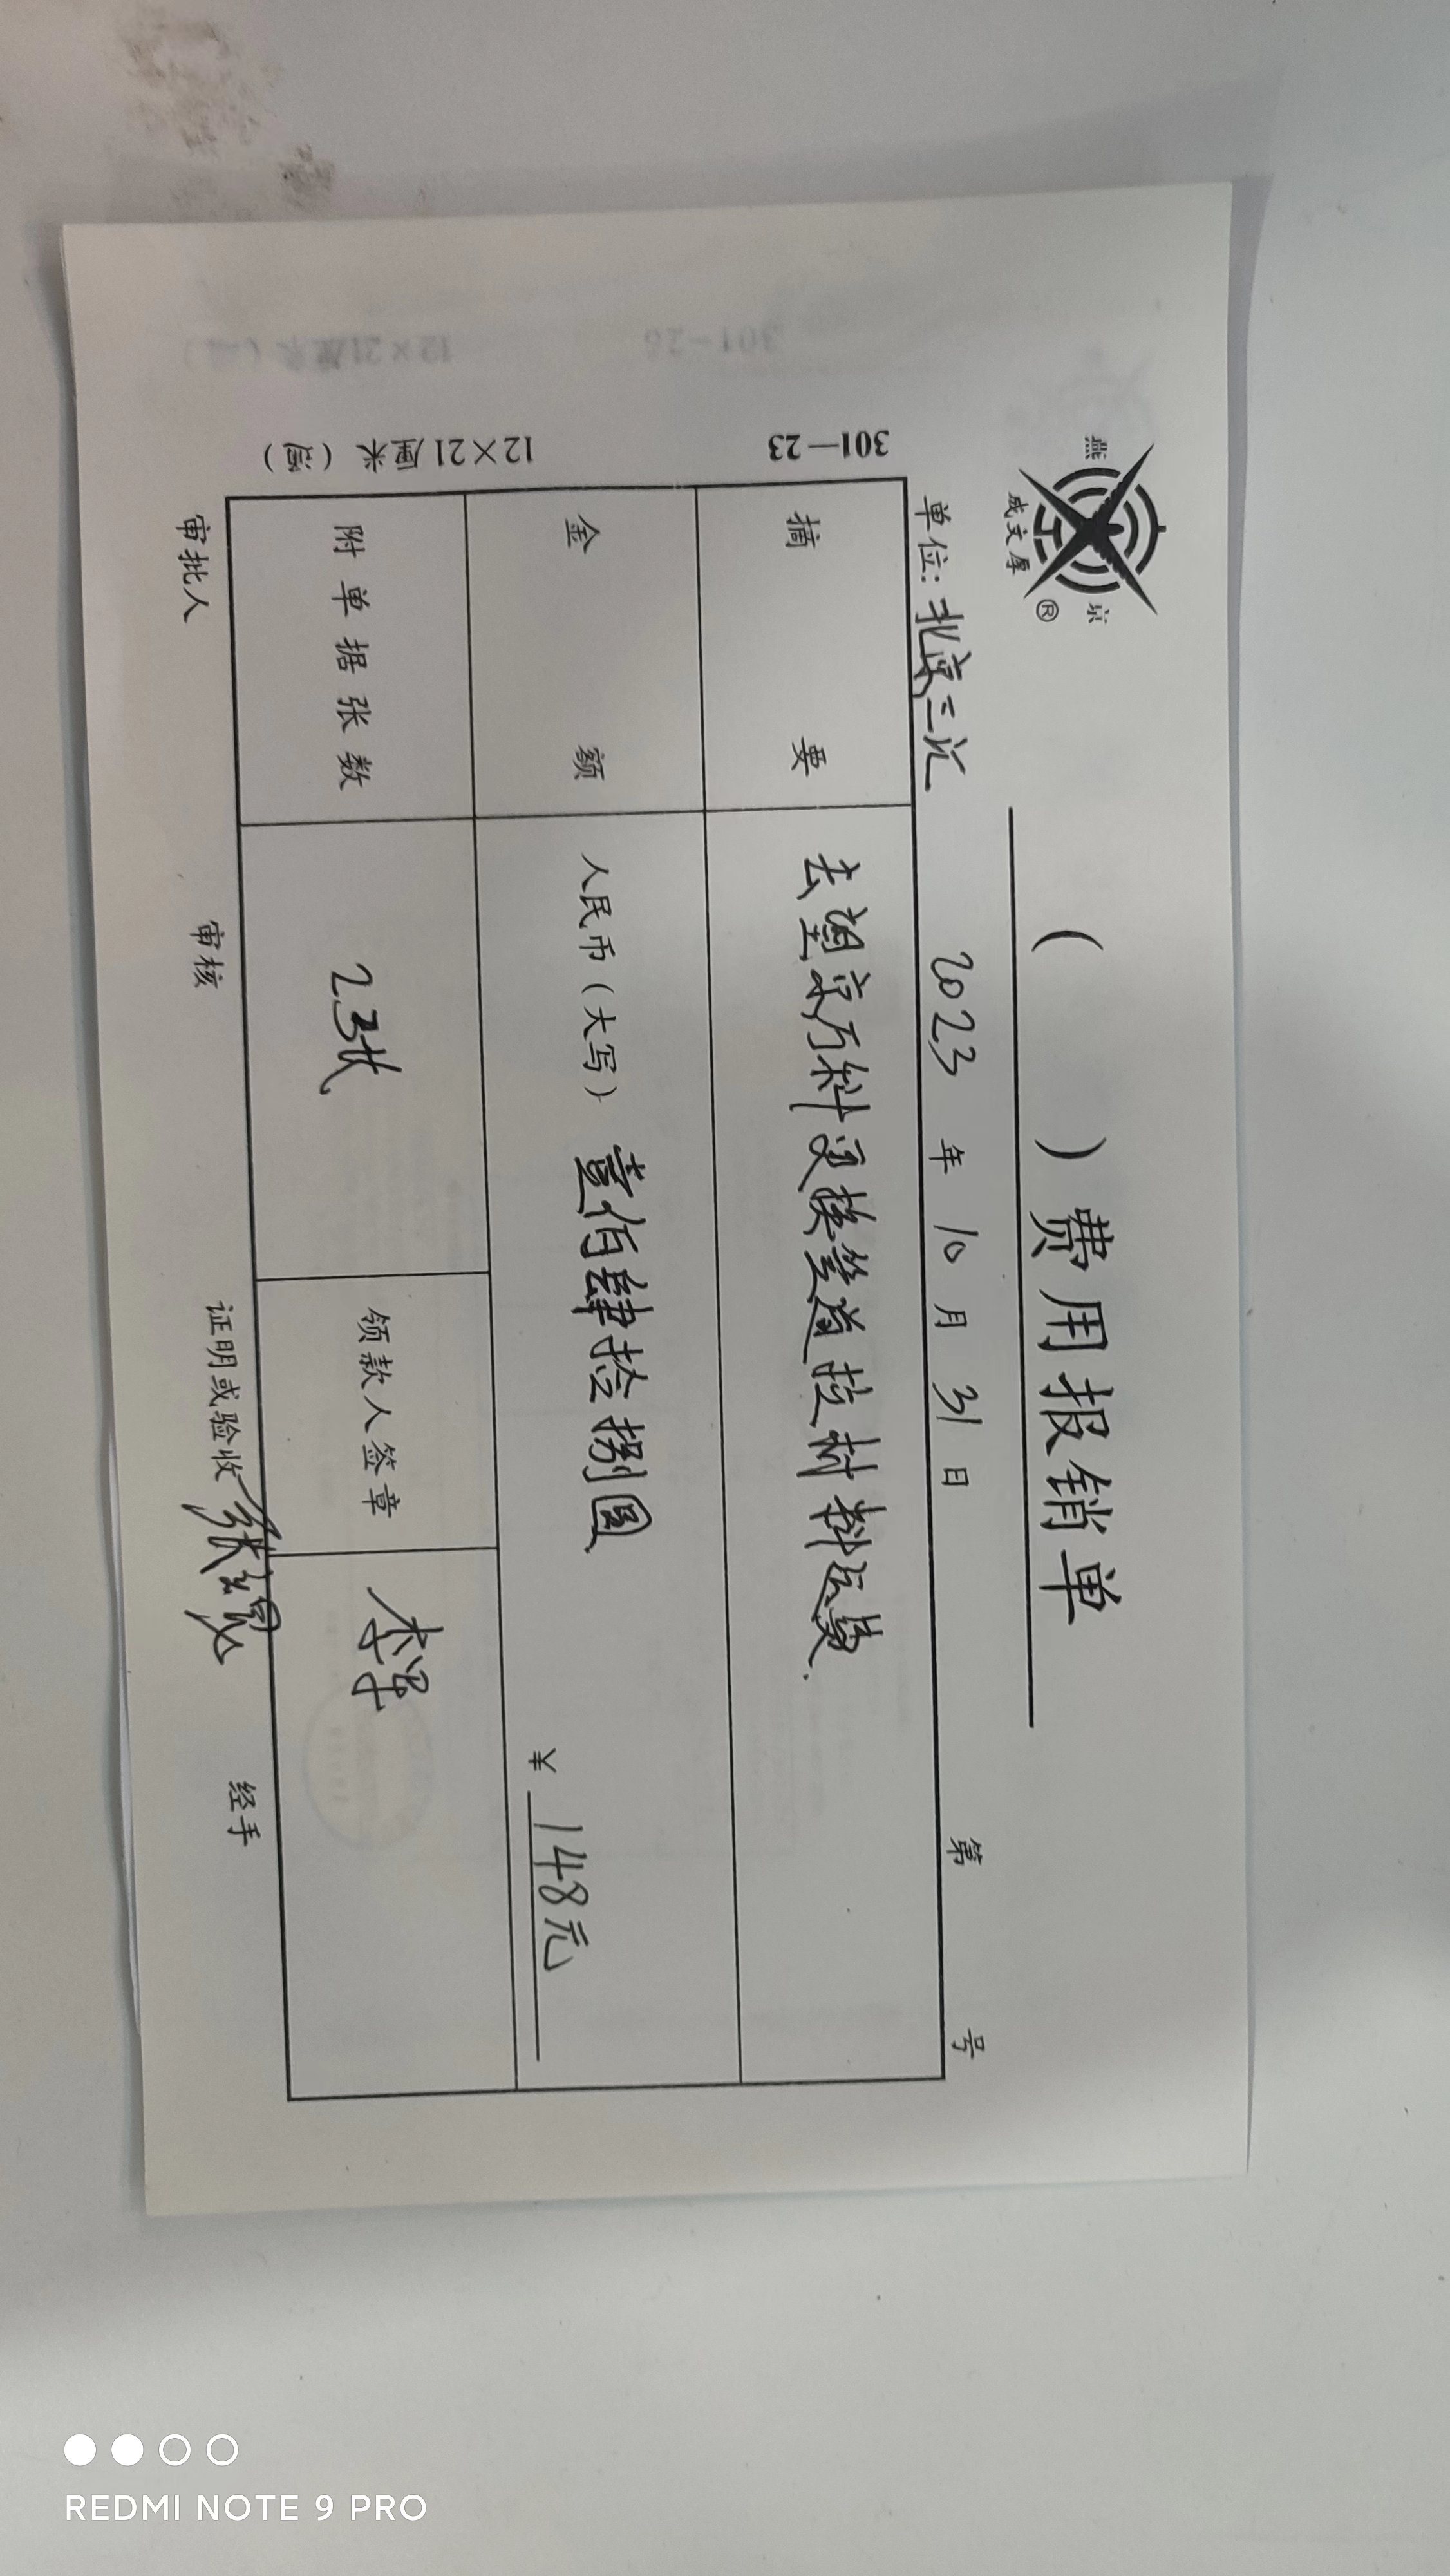 燕京
成文厚®
( )费用报销单
单位:北京三汇 2023 年 10 月 31 日 第 号
摘要 去望京万科更换管道拉材料运费.
金额 人民币(大写) 壹佰肆拾捌圆
¥ 148元
附单据张数 23张 领款人签章 李军
审批人 审核 证明或验收 张 经手
301—23
12×21厘米 (通)
301-26
12×21厘米
REDMI NOTE 9 PRO